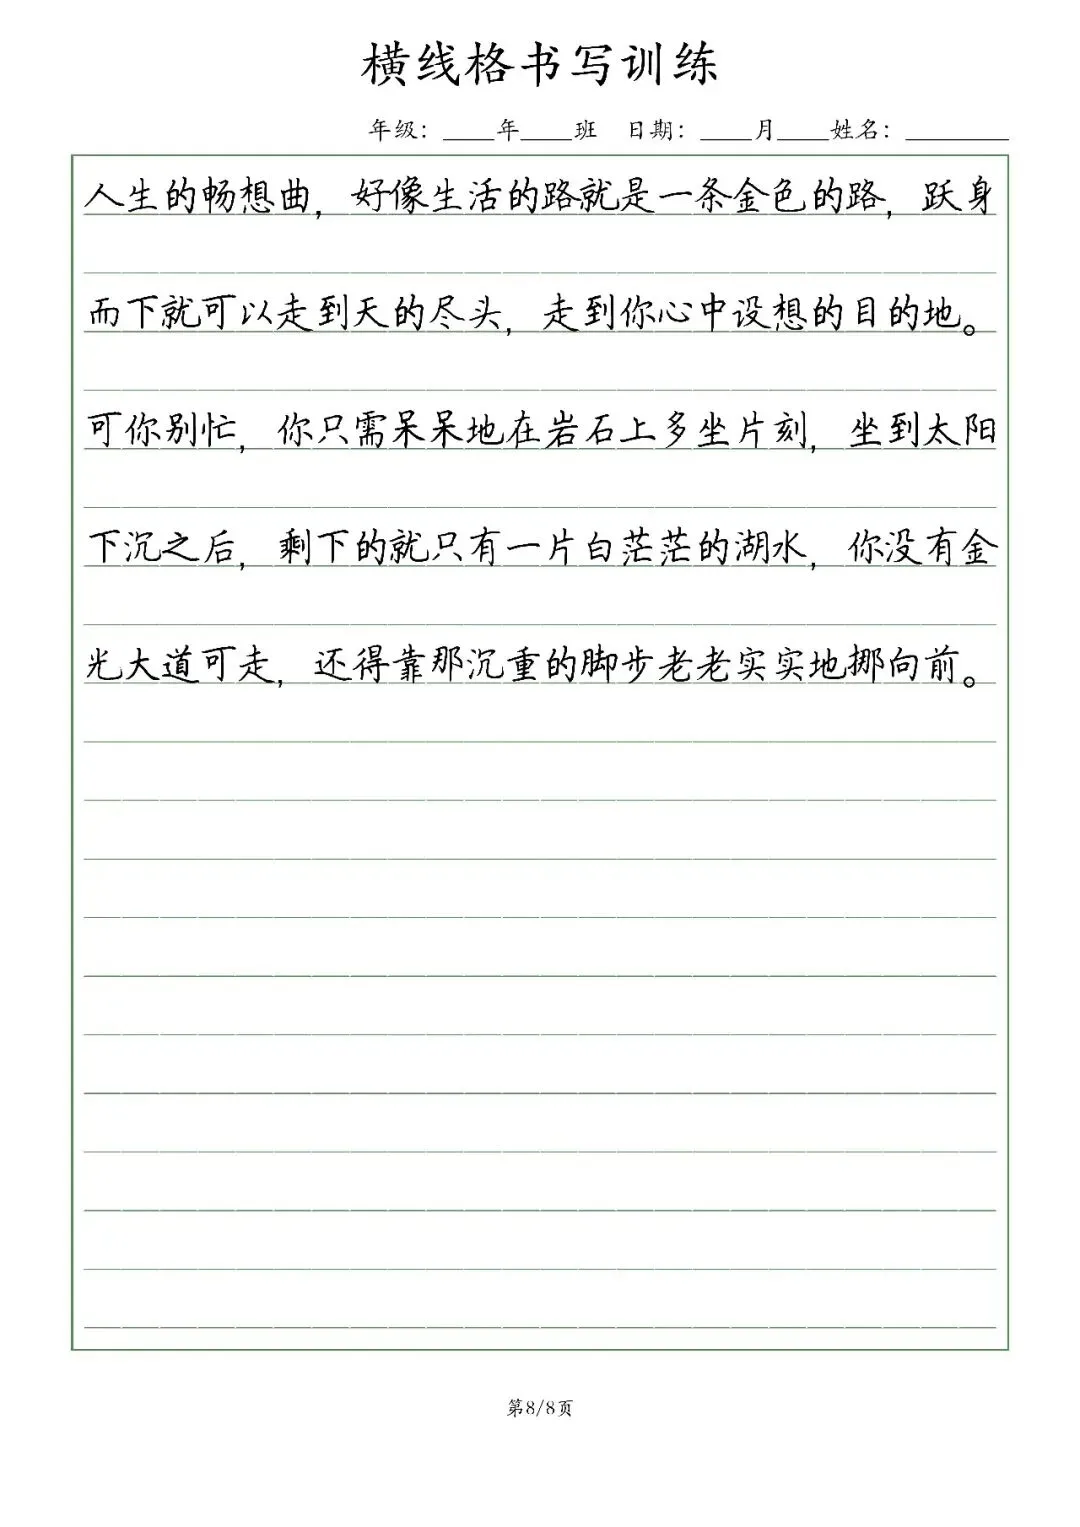 横线格书写训练
年级：____年____班 日期：____月____姓名：________
人生的畅想曲，好像生活的路就是一条金色的路，跃身
而下就可以走到天的尽头，走到你心中设想的目的地。
可你别忙，你只需呆呆地在岩石上多坐片刻，坐到太阳
下沉之后，剩下的就只有一片白茫茫的湖水，你没有金
光大道可走，还得靠那沉重的脚步老老实实地挪向前。
第8/8页